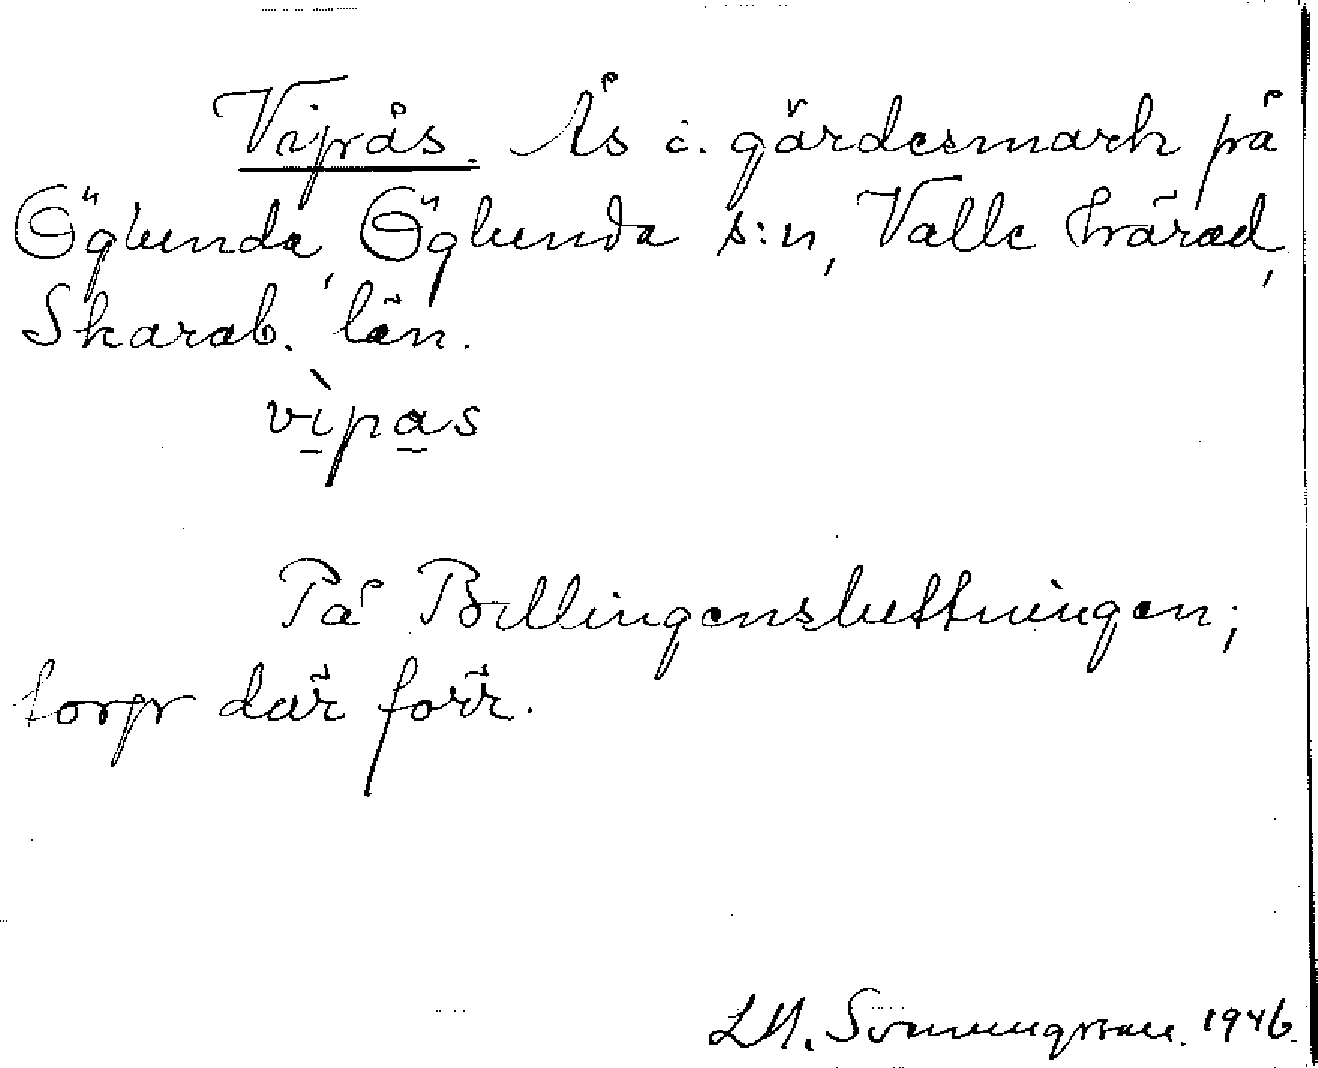 Vipås. Ås i gärdesmark på
Öglunda, Öglunda s:n, Valle härad,
Skarab. län.
vìpas
På Billingensluttningen;
torp där förr.
1946.